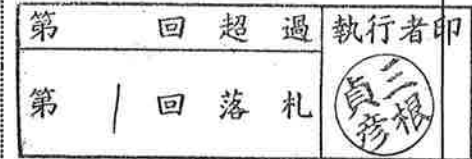 第 回 超 過
執行者印
第 1 回 落 札
三根
貞彦